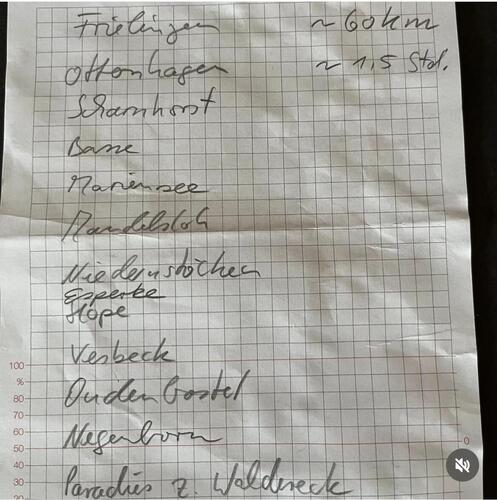 Frielingen ~ 60 km
Ottenhagen ~ 1,5 Std.
Scharnhorst
Basse
Mariensee
Mandelsloh
Niedernstöcken
Esperke
Hope
Vesbeck
Oudenbostel
Negenborn
Paradies z. Waldereck
100
%
80
70
60
50
40
30
20
0